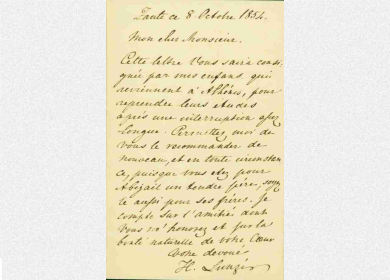 Zante ce 8 Octobre 1854.
Mon cher Monsieur.
Cette lettre Vous sera consi-
gnée par mes enfans qui
reviennent à Athénes, pour
reprendre leurs etudes
après une interruption assez
longue. Permettez moi de
vous le recommander de
nouveau, et en toute circonstan
ce, puisque vous etez pour
un tendre père, soyez
le aussi pour ses frères. Je
compte sur l'amitié dont
Vous m'honorez et sur la
bonté naturelle de votre Cœur
Votre devoué
H.